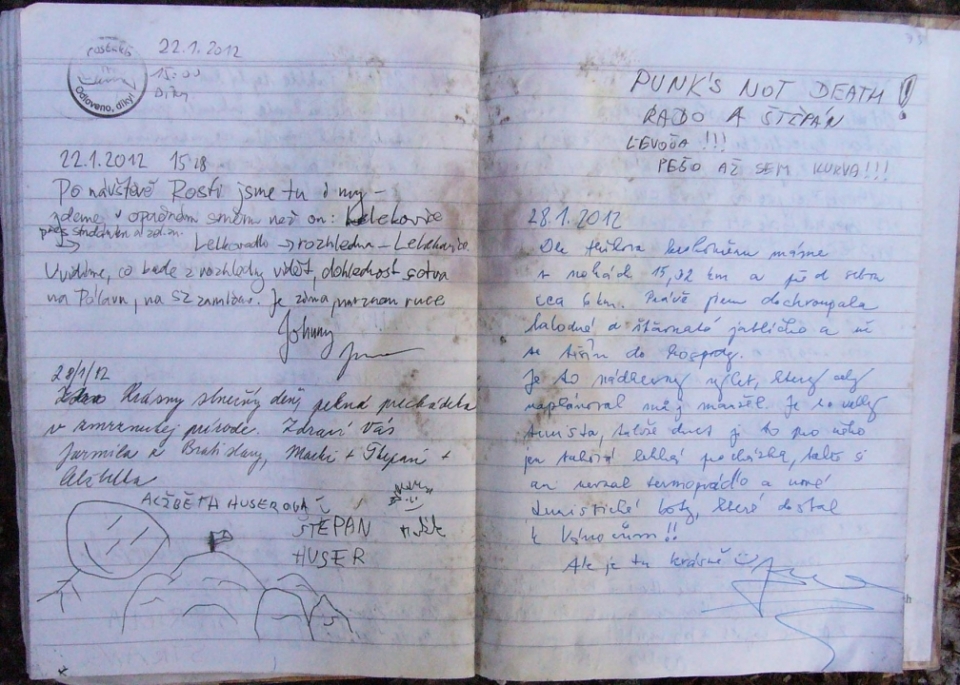 Odloveno, díky!
22.1.2012
15:00
Díky
22.1.2012 15:18
Po návštěvě Rosti jsme tu i my –
jdeme v opačném směru než on: Lelekovice
přes studánku a
→ rozhledna – Lelekovice
Uvidíme, co bude z rozhledny vidět, dohlednost sotva
na Pálavu, na SZ zamlženo. Je zima, mrznou ruce
Johnny
28/1/12
Krásny slnečný deň, pelná prechádzka
v zamrznutej prírode. Zdraví Vás
Jarmila z Bratislavy, Macki + Štěpán +
Alžběta
ALŽBĚTA HUSEROVÁ
ŠTĚPÁN
HUSER
PUNK'S NOT DEATH!
RADO A ŠTĚPÁN
LEVOČA !!!
PEŠO AŽ SEM KURVA!!!
28.1.2012
Dle máme
v nohách 15,92 km a před sebou
cca 6 km. Právě jsem dochroupala
lahodné a šťavnaté jablíčko a už
se těším do hospody.
Je to nádherný výlet, který celý
naplánoval můj manžel. Je to velký
turista, takže dnes je to pro něho
jen taková lehká procházka, takže si
ani nevzal termoprádlo a nové
turistické boty, které dostal
k Vánocům!!
Ale je tu krásně